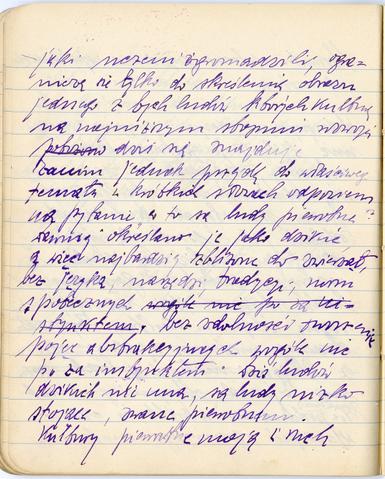 jaki uczeni zgromadzili, ogra-
niczę się tylko do skreślenia obrazu
jednego z tych ludzi których kultura
na najniższym stopniu rozwoju
dziś się znajduje
Zanim jednak przejdę do właściwego
tematu w krótkich słowach odpowiem
na pytanie co to są ludy pierwotne?
Dawniej określano je jako dzikie
a więc najbardziej zbliżone do zwierząt,
bez języka, narzędzi tradycji, norm
społecznych wogóle nic po za in-
stynktem, bez zdolności tworzenia
pojęć abstrakcyjnych wogóle nic
po za instynktem. Dziś ludzi
dzikich nie ma, są ludy nisko
stojące, zwane pierwotnemi.
Kultury pierwotne mają i swoje